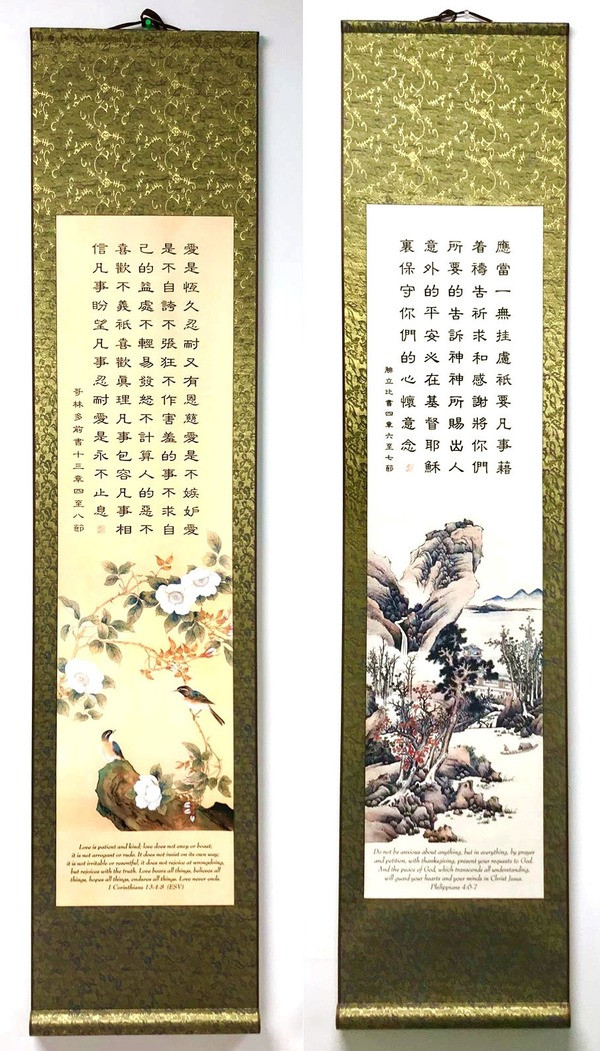 愛是恆久忍耐又有恩慈愛是不嫉妒愛
是不自誇不張狂不作害羞的事不求自
己的益處不輕易發怒不計算人的惡不
喜歡不義祇喜歡眞理凡事包容凡事相
信凡事盼望凡事忍耐愛是永不止息
哥林多前書十三章四至八節
Love is patient and kind; love does not envy or boast;
it is not arrogant or rude. It does not insist on its own way;
it is not irritable or resentful; it does not rejoice at wrongdoing,
but rejoices with the truth. Love bears all things, believes all
things, hopes all things, endures all things. Love never ends.
1 Corinthians 13:4-8 (ESV)
應當一無挂慮祇要凡事藉
着禱告祈求和感謝將你們
所要的告訴神神所賜出人
意外的平安必在基督耶穌
裏保守你們的心懷意念
腓立比書四章六至七節
Do not be anxious about anything, but in everything, by prayer
and petition, with thanksgiving, present your requests to God.
And the peace of God, which transcends all understanding,
will guard your hearts and your minds in Christ Jesus.
Philippians 4:6-7